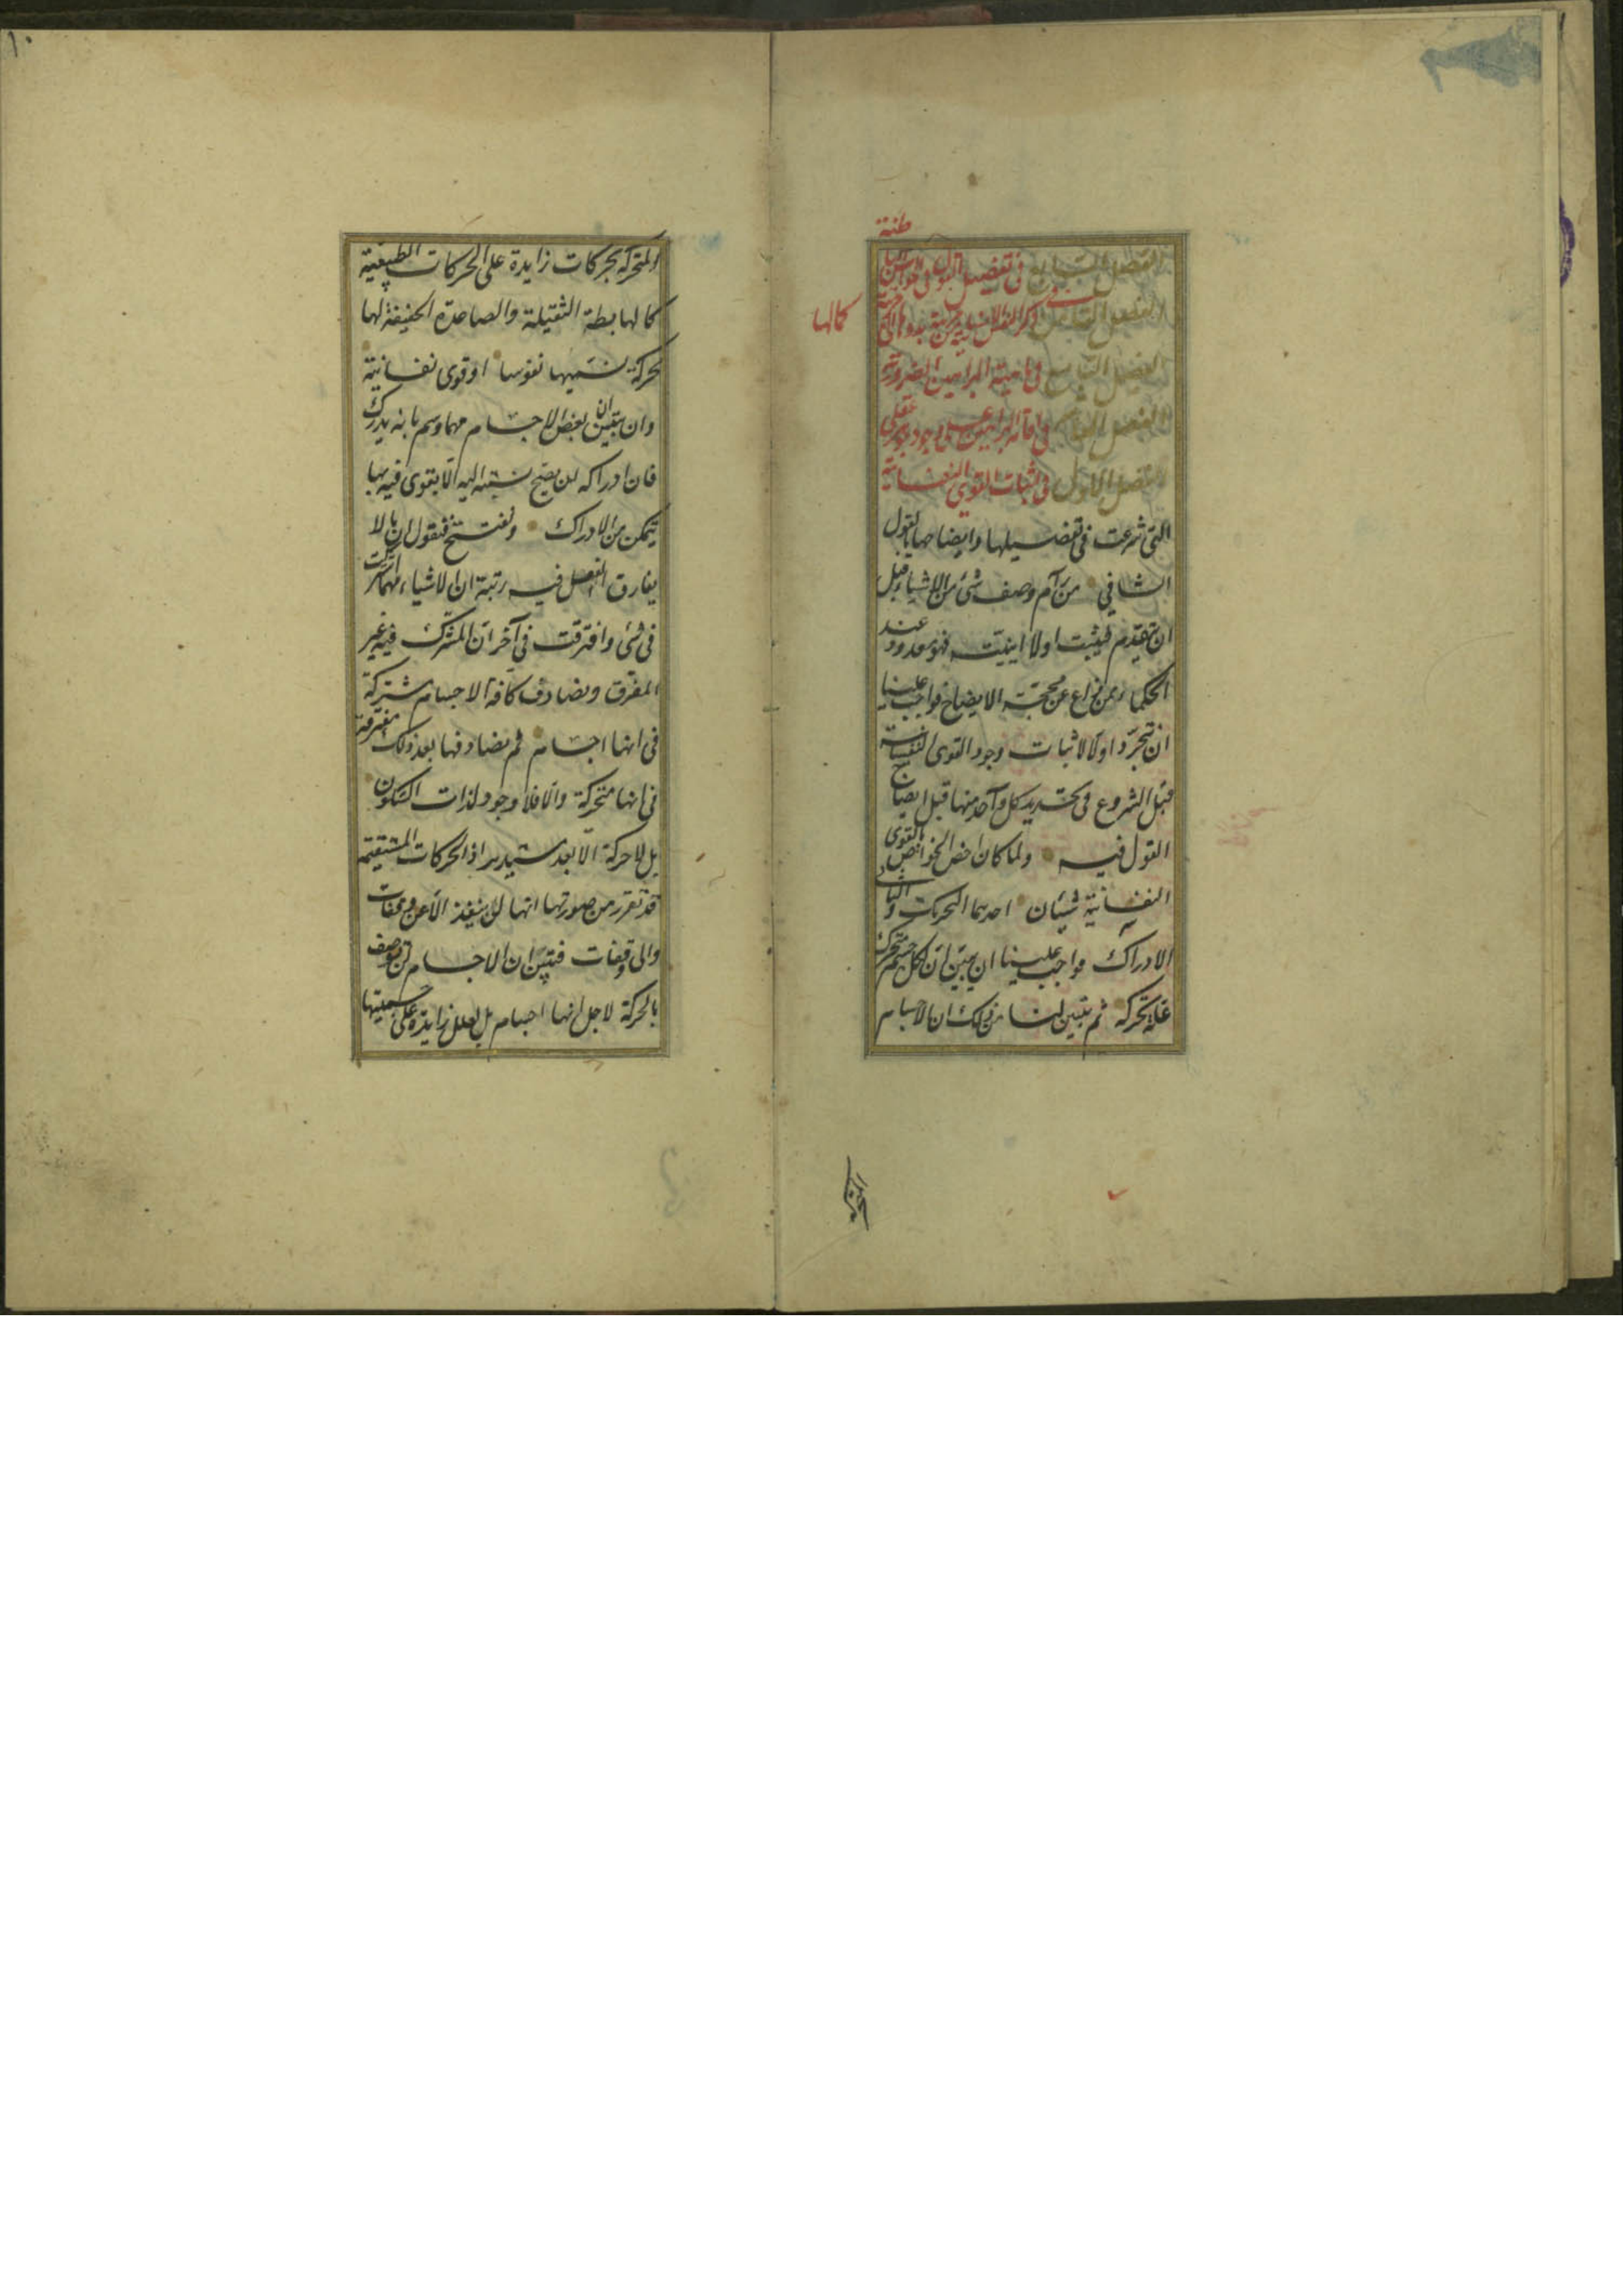 ١٠
طنة
الفصل السابع في تفصيل القول في الحواس البا
الفصل الثامن في ذكر النفس الانسانية من مرتبة بدوها الى مرتبة
كمالها
الفصل التاسع في ماهية البراهين الضرورية
الفصل العاشر في اقامة البراهين على وجود جوهر عقلي
الفصل الاول في اثبات القوى النفسانية
التي شرعت في تفصيلها وايضاحها بالقول
الشافي من رام وصف شئ من الاشياء قبل
ان يتقدم فيثبت اولا اينيته فهو معدود عند
الحكماء ممن زاغ عن محجة الايضاح فواجب علينا
ان نتجرد اولا لاثبات وجود القوى النفسانية
قبل الشروع في تحديد كل واحد منها قبل ايضاح
القول فيه ولما كان اخص الخواص بالقوى
النفسانية شيئان احدهما التحريك والثاني
الادراك فواجب علينا ان نبين ان لكل جسم متحرك
علة محركة ثم يتبين لنا من ذلك ان الاجسام
المتحركة
المتحركة بحركات زايدة على الحركات الطبيعية
كالهابطة الثقيلة والصاعدة الخفيفة لها
محركة نسميها نفوسا او قوى نفسانية
وان نتبين ان بعض الاجسام مهما وسم بانه يدرك
فان ادراكه لن يصح نسبته اليه الا بقوى فيه بها
يتمكن من الادراك ونفتتح فنقول ان بالا
يفارق الفصل فيه رتبة ان الاشياء مهما اشتركت
في شئ وافترقت في آخر ان المشترك فيه غير
المفرق ونصادف كافة الاجسام مشتركة
في انها اجسام ثم نصادفها بعد ذلك مفترقة
في انها متحركة والا فلا وجود لذات السكون
بل لا حركة الا بعد مستدير اذ الحركات المستقيمة
قد تقرر من صورتها انها لن تنفذ الا عن وقفات
والى وقفات فتبين ان الاجسام لن توصف
بالحركة لاجل انها اجسام بل لعلل زايدة على جسميتها